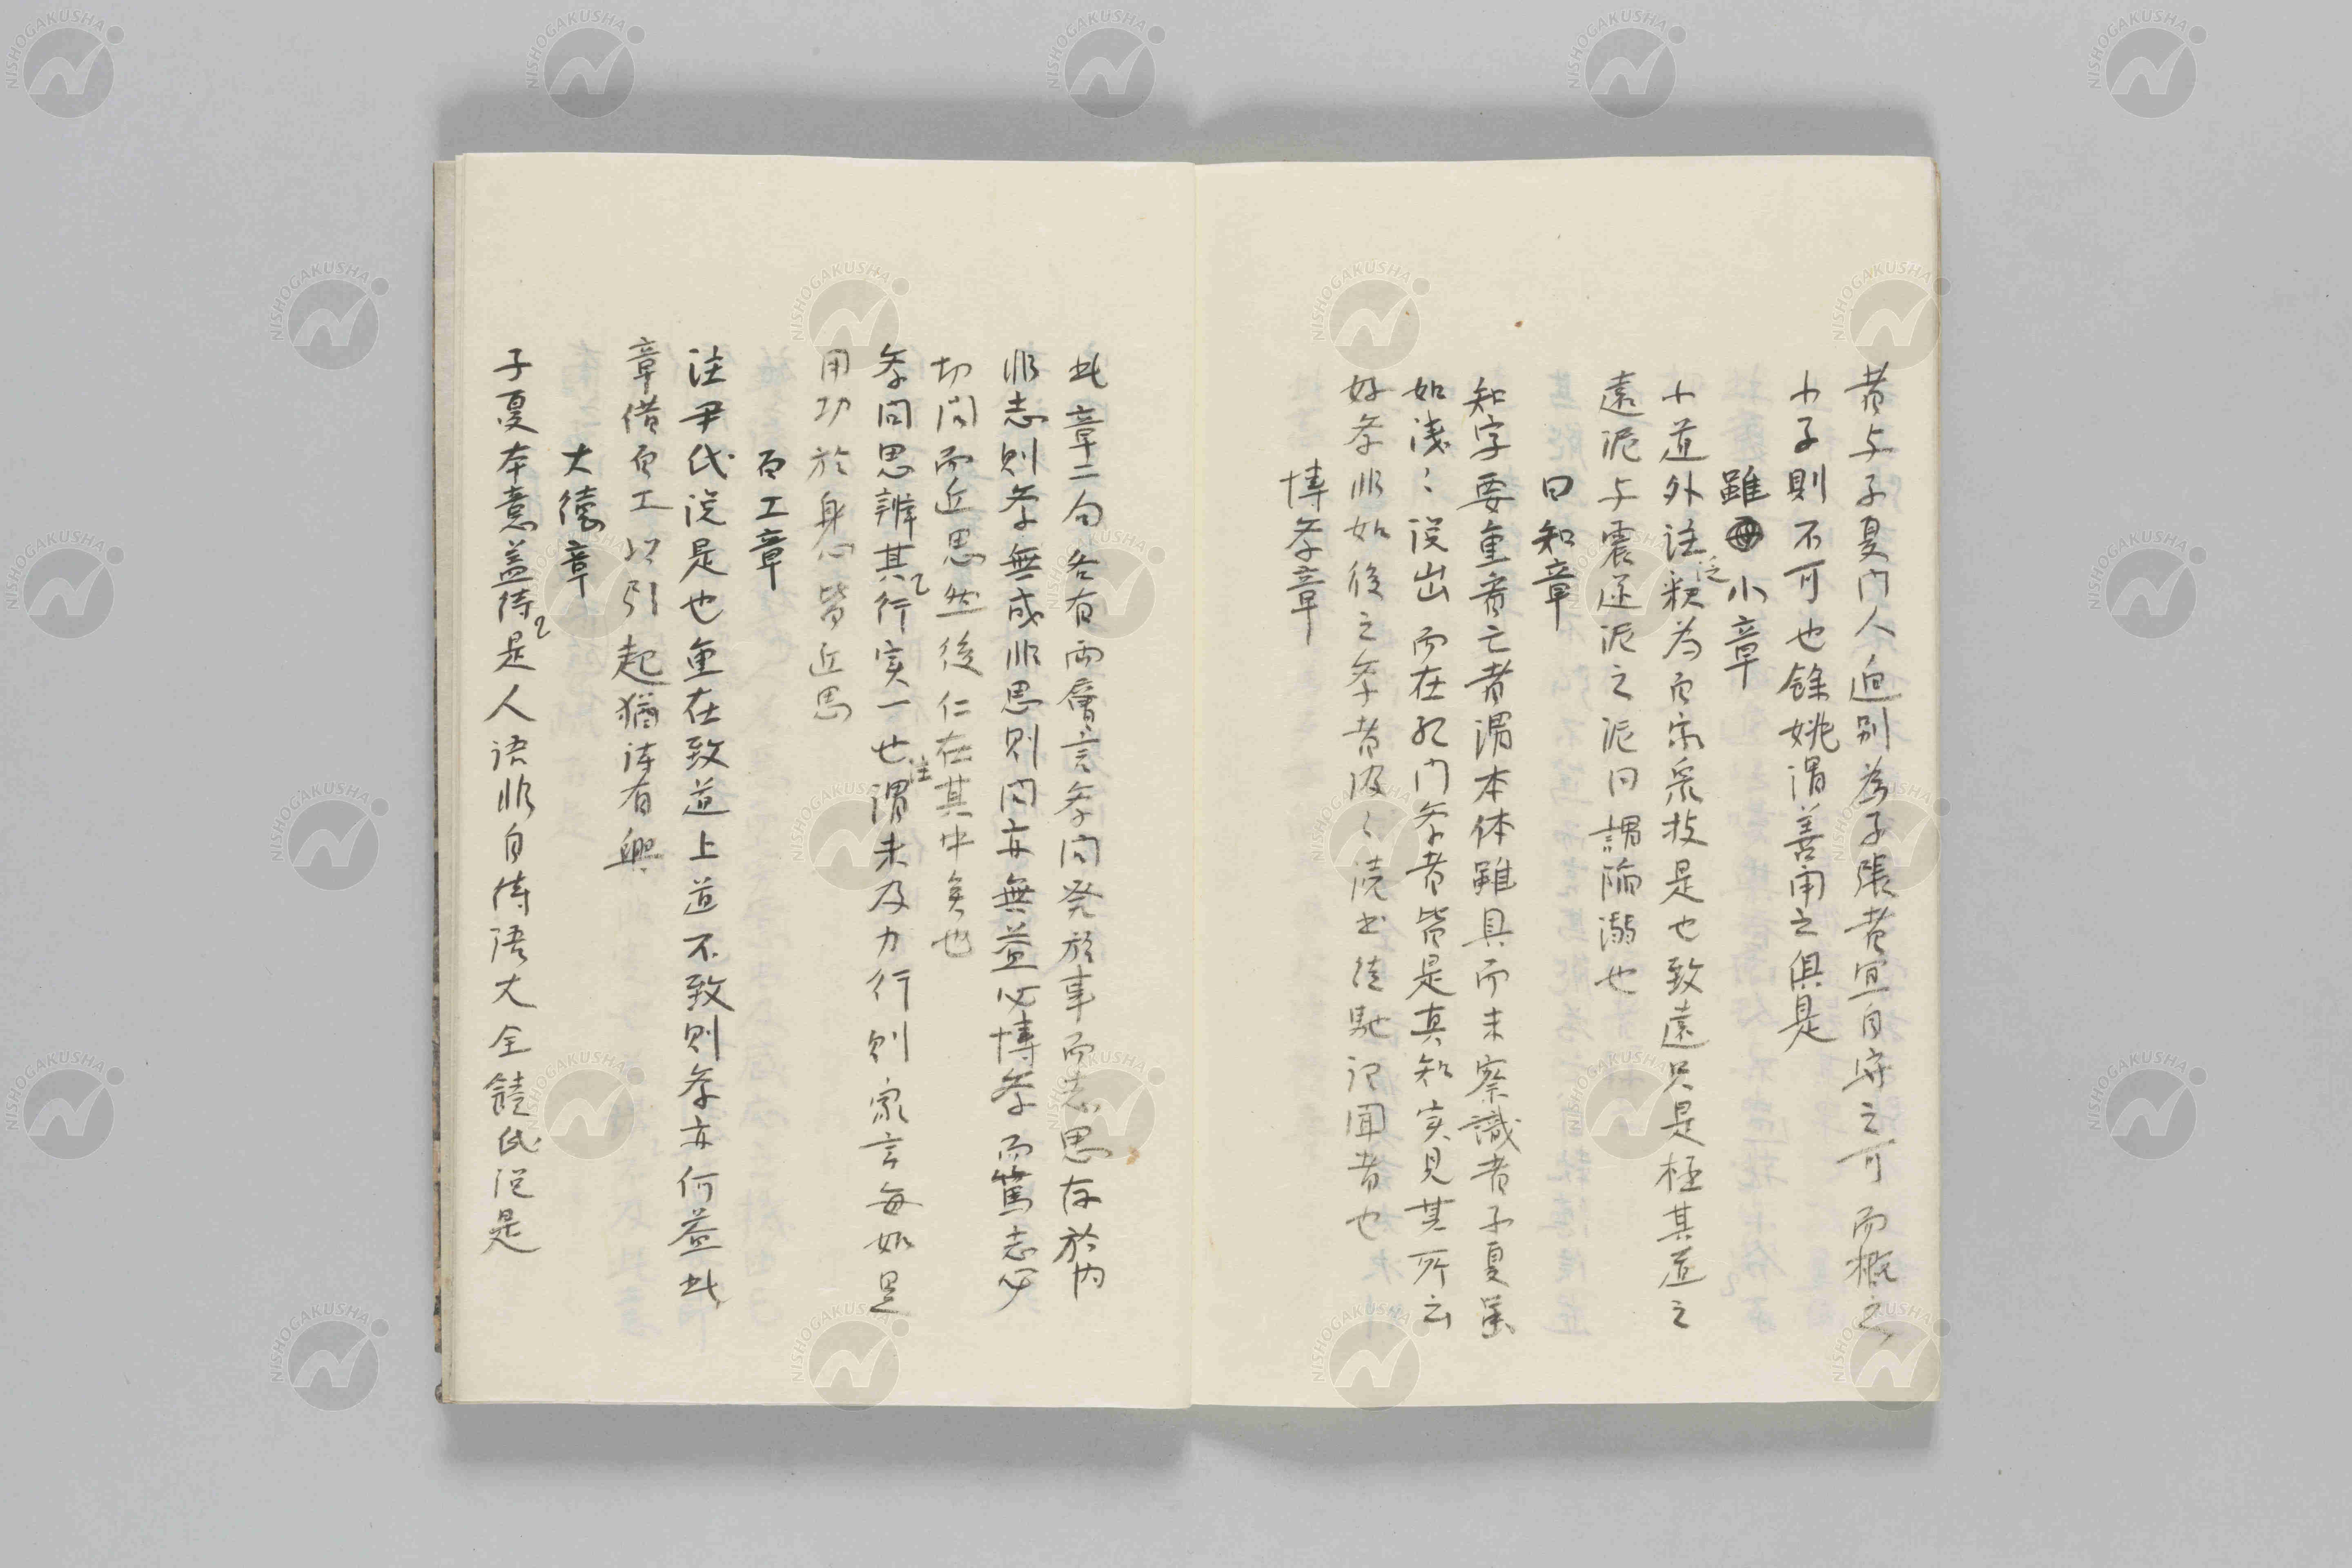 昔与子夏门人迫别為子張者宜自守之可而概之
小子則不可也餘姚謂善用之俱是
雖小章
小道外注釈為百家衆技是也致遠只是極其道之
遠泥与震遂泥之泥同謂陥溺也
日知章
知字要重看亡者謂本体雖具而未察識者子夏虽
如浅〻説出而在孔门孝者皆是真知実見其所云
好孝非如後之孝者汲〻読書徒馳記聞者也
博孝章
此章二句各有両層言孝问発於事而志思存於内
非志則孝無成非思則问亦無益必博孝而篤志必
切问而近思然後仁在其中矣也
孝问思辨其行実一也注謂未及力行則家言毎如是
用功於身心皆近思
百工章
注尹氏説是也重在致道上道不致則孝亦何益此
章借百工以引起猶詩有興
大徳章
子夏本意盖待是人语非自待语大全饒氏説是
NISHOGAKUSHA